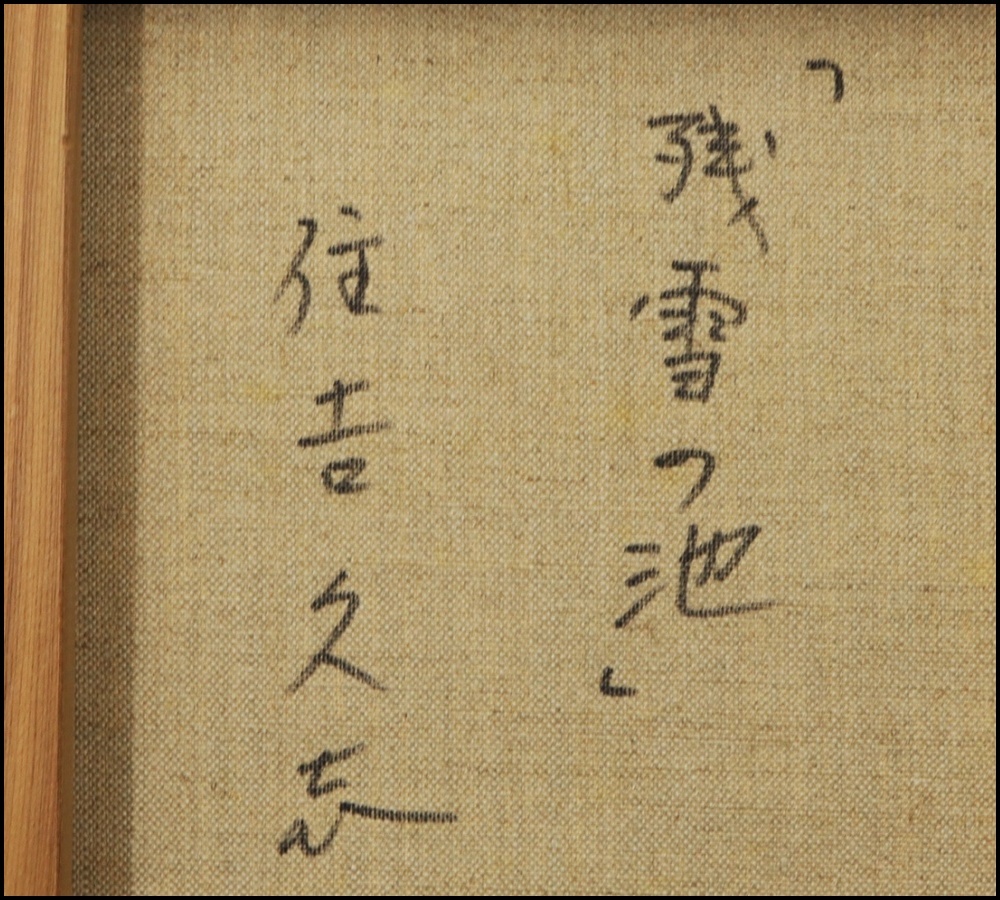 「残雪の池」
住吉久志